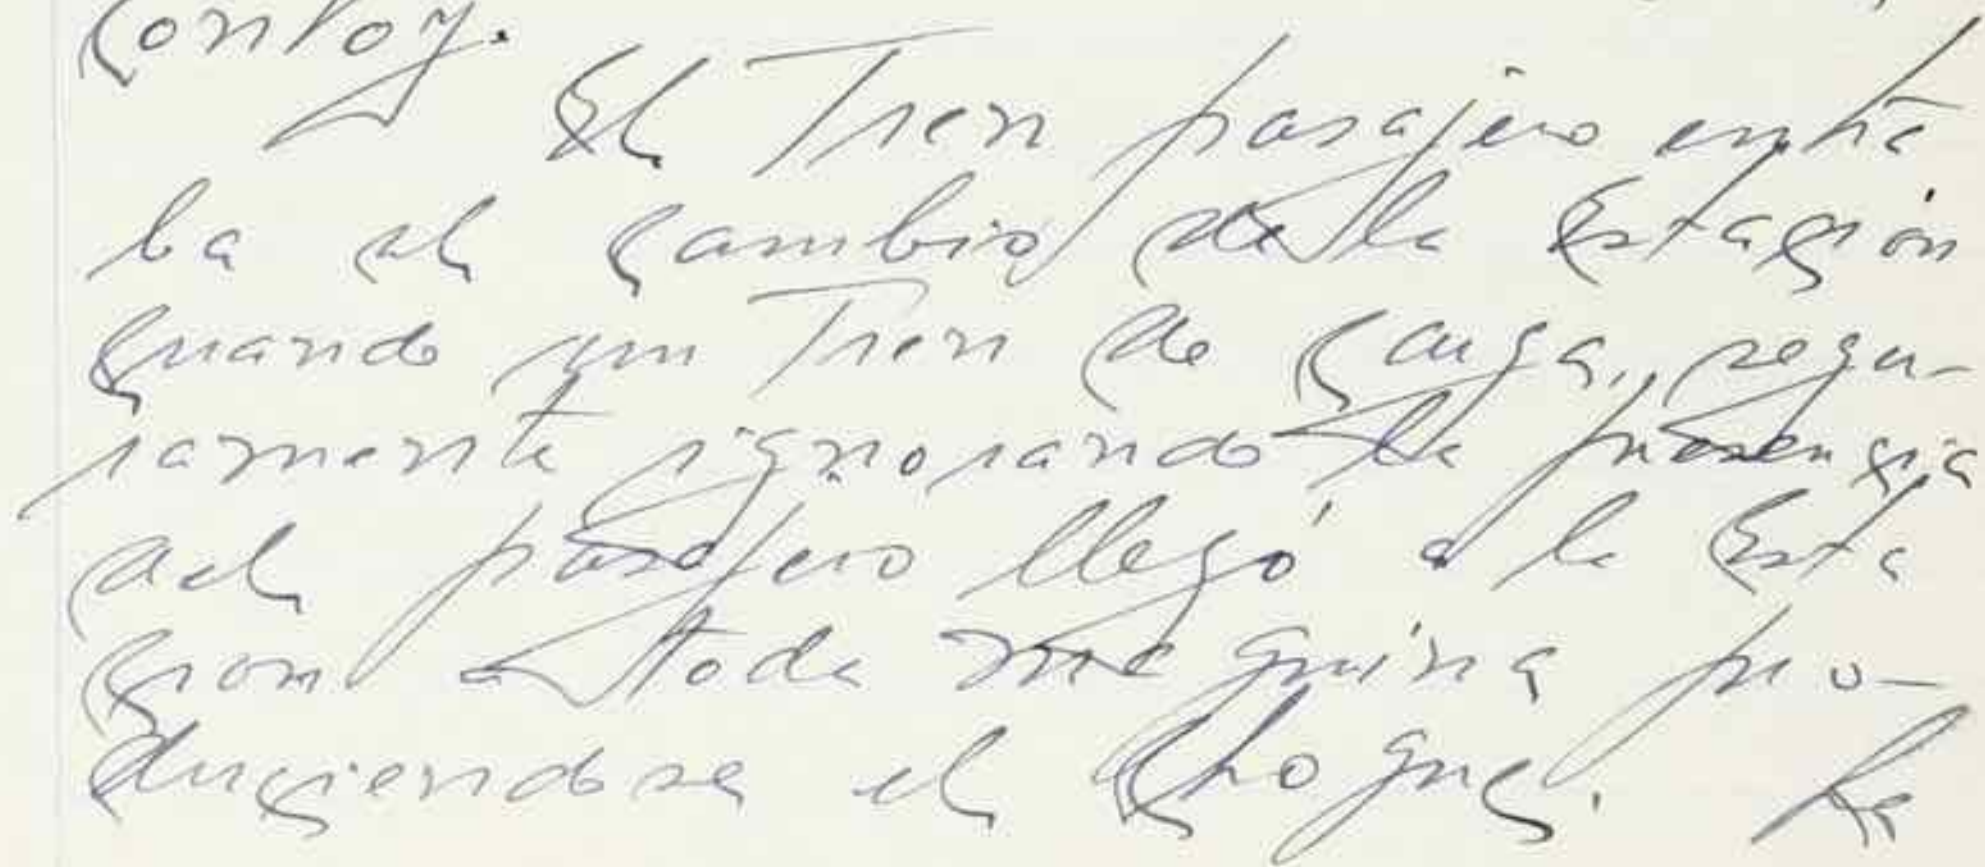 El Tren pasajero entra
ba al cambio de la Estación
Cuando un Tren de Carga, segu-
ramente ignorando la presencia
del pasajero llegó a la Esta
cion a toda máquina pro-
duciendose el Choque.